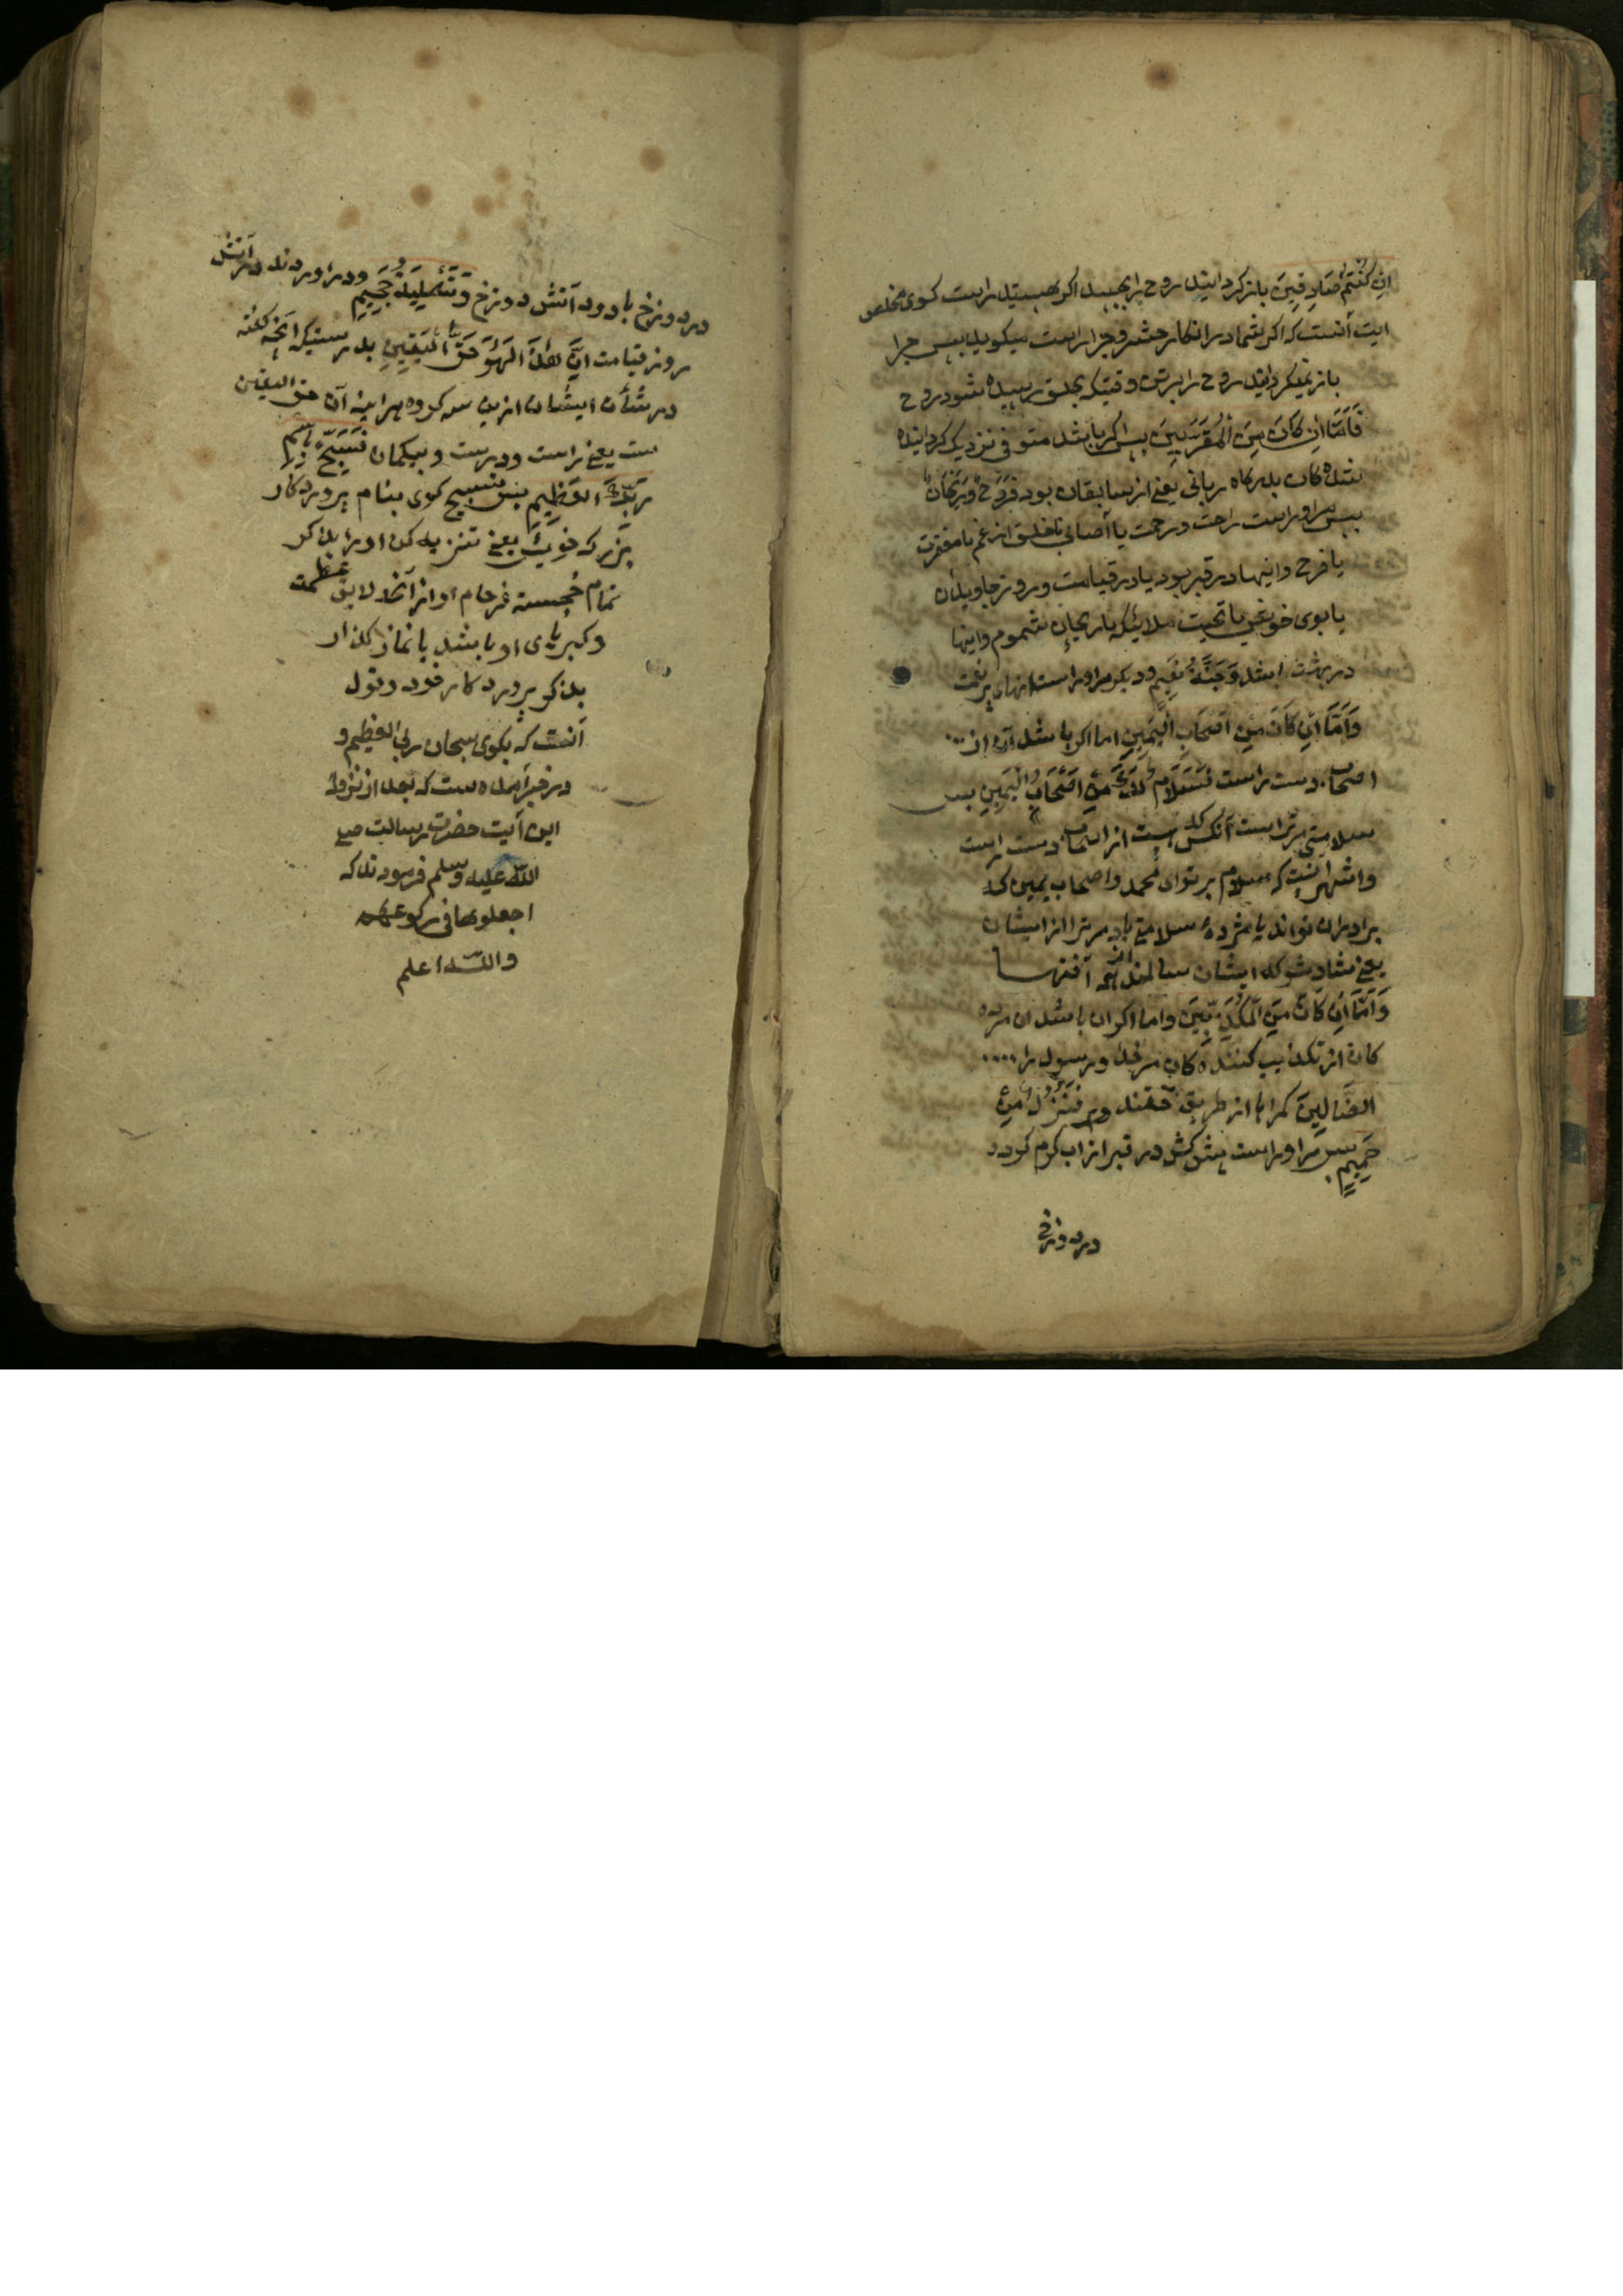 اِنْ كُنْتُمْ صَادِقِينَ باز گردانید روح را بجسد اگر هستید راست گوی مخلص
ایت آنست که اگر شما در انکار حشر و جزا راست میگویید پس چرا
باز نمیگردانید روح را بر تن وقتیکه بحلق رسیده شود روح
فَاَمَّا اِنْ كَانَ مِنَ الْمُقَرَّبِينَ پس اگر باشد متوفی نزدیک گردانیده
شدگان بدرگاه ربانی یعنی از سابقان بود فَرَوْحٌ وَرَيْحَانٌ
پس مر او راست راحت و رحمت یا آسانی یا خلق از غم یا مغفرت
یا فرح و اینها در قبر بود یا در قیامت و روز جاویدان
یا بوی خوش یا تحیت ملائکه یا ریحان مشموم و اینها
در بهشت باشد وَجَنَّةُ نَعِيمٍ و دیگر مر او راست پر نعمت
وَاَمَّا اِنْ كَانَ مِنْ اَصْحَابِ الْيَمِينِ اما اگر باشد آن از ...
اصحاب دست راست فَسَلَامٌ لَكَ مِنْ اَصْحَابِ الْيَمِينِ پس
سلامتی مر تراست آنکس که هست از اصحاب دست راست
و اشهر آنست که سلام بر تو ای محمد و اصحاب یمین که
برادران تواند یا مژده سلامتی باد مر ترا از ایشان
یعنی شاد شو که ایشان سالمند از همه آفتها
وَاَمَّا اِنْ كَانَ مِنَ الْمُكَذِّبِينَ و اما اگر آن باشد آن مرده
کان از تکذیب کننده گان مر خدا و رسول را ....
الضَّالِّينَ گمراهان از طریق حق فَنُزُلٌ مِنْ
حَمِيمٍ پس مر او راست پیش کش در قبر از آب گرم کرده
در دوزخ
در دوزخ با دود آتش دوزخ وَتَصْلِيَةُ جَحِيمٍ و در آوردند در آتش
روز قیامت اِنَّ هٰذَا لَهُوَ حَقُّ الْيَقِينِ بدرستیکه آنچه گفته
در شان ایشان ازین سه گروه هر آینه آن حق الیقین
ست یعنی راست و درست و بیگمان فَسَبِّحْ بِاسْمِ
رَبِّكَ الْعَظِيمِ پس تسبیح گوی بنام پروردگار
بزرگ خویش یعنی تنزیه کن او را بذکر
نام خجسته فرجام او از آنچه لایق عظمت
و کبریای او باشد یا نماز گذار
بذکر پروردگار خود و قول
آنست که بگوی سبحان ربی العظیم و
در خبر آمده است که بعد از نزول
این آیت حضرت رسالت صلی
الله علیه و سلم فرمودند که
اجعلوها فی رکوعکم
والله اعلم